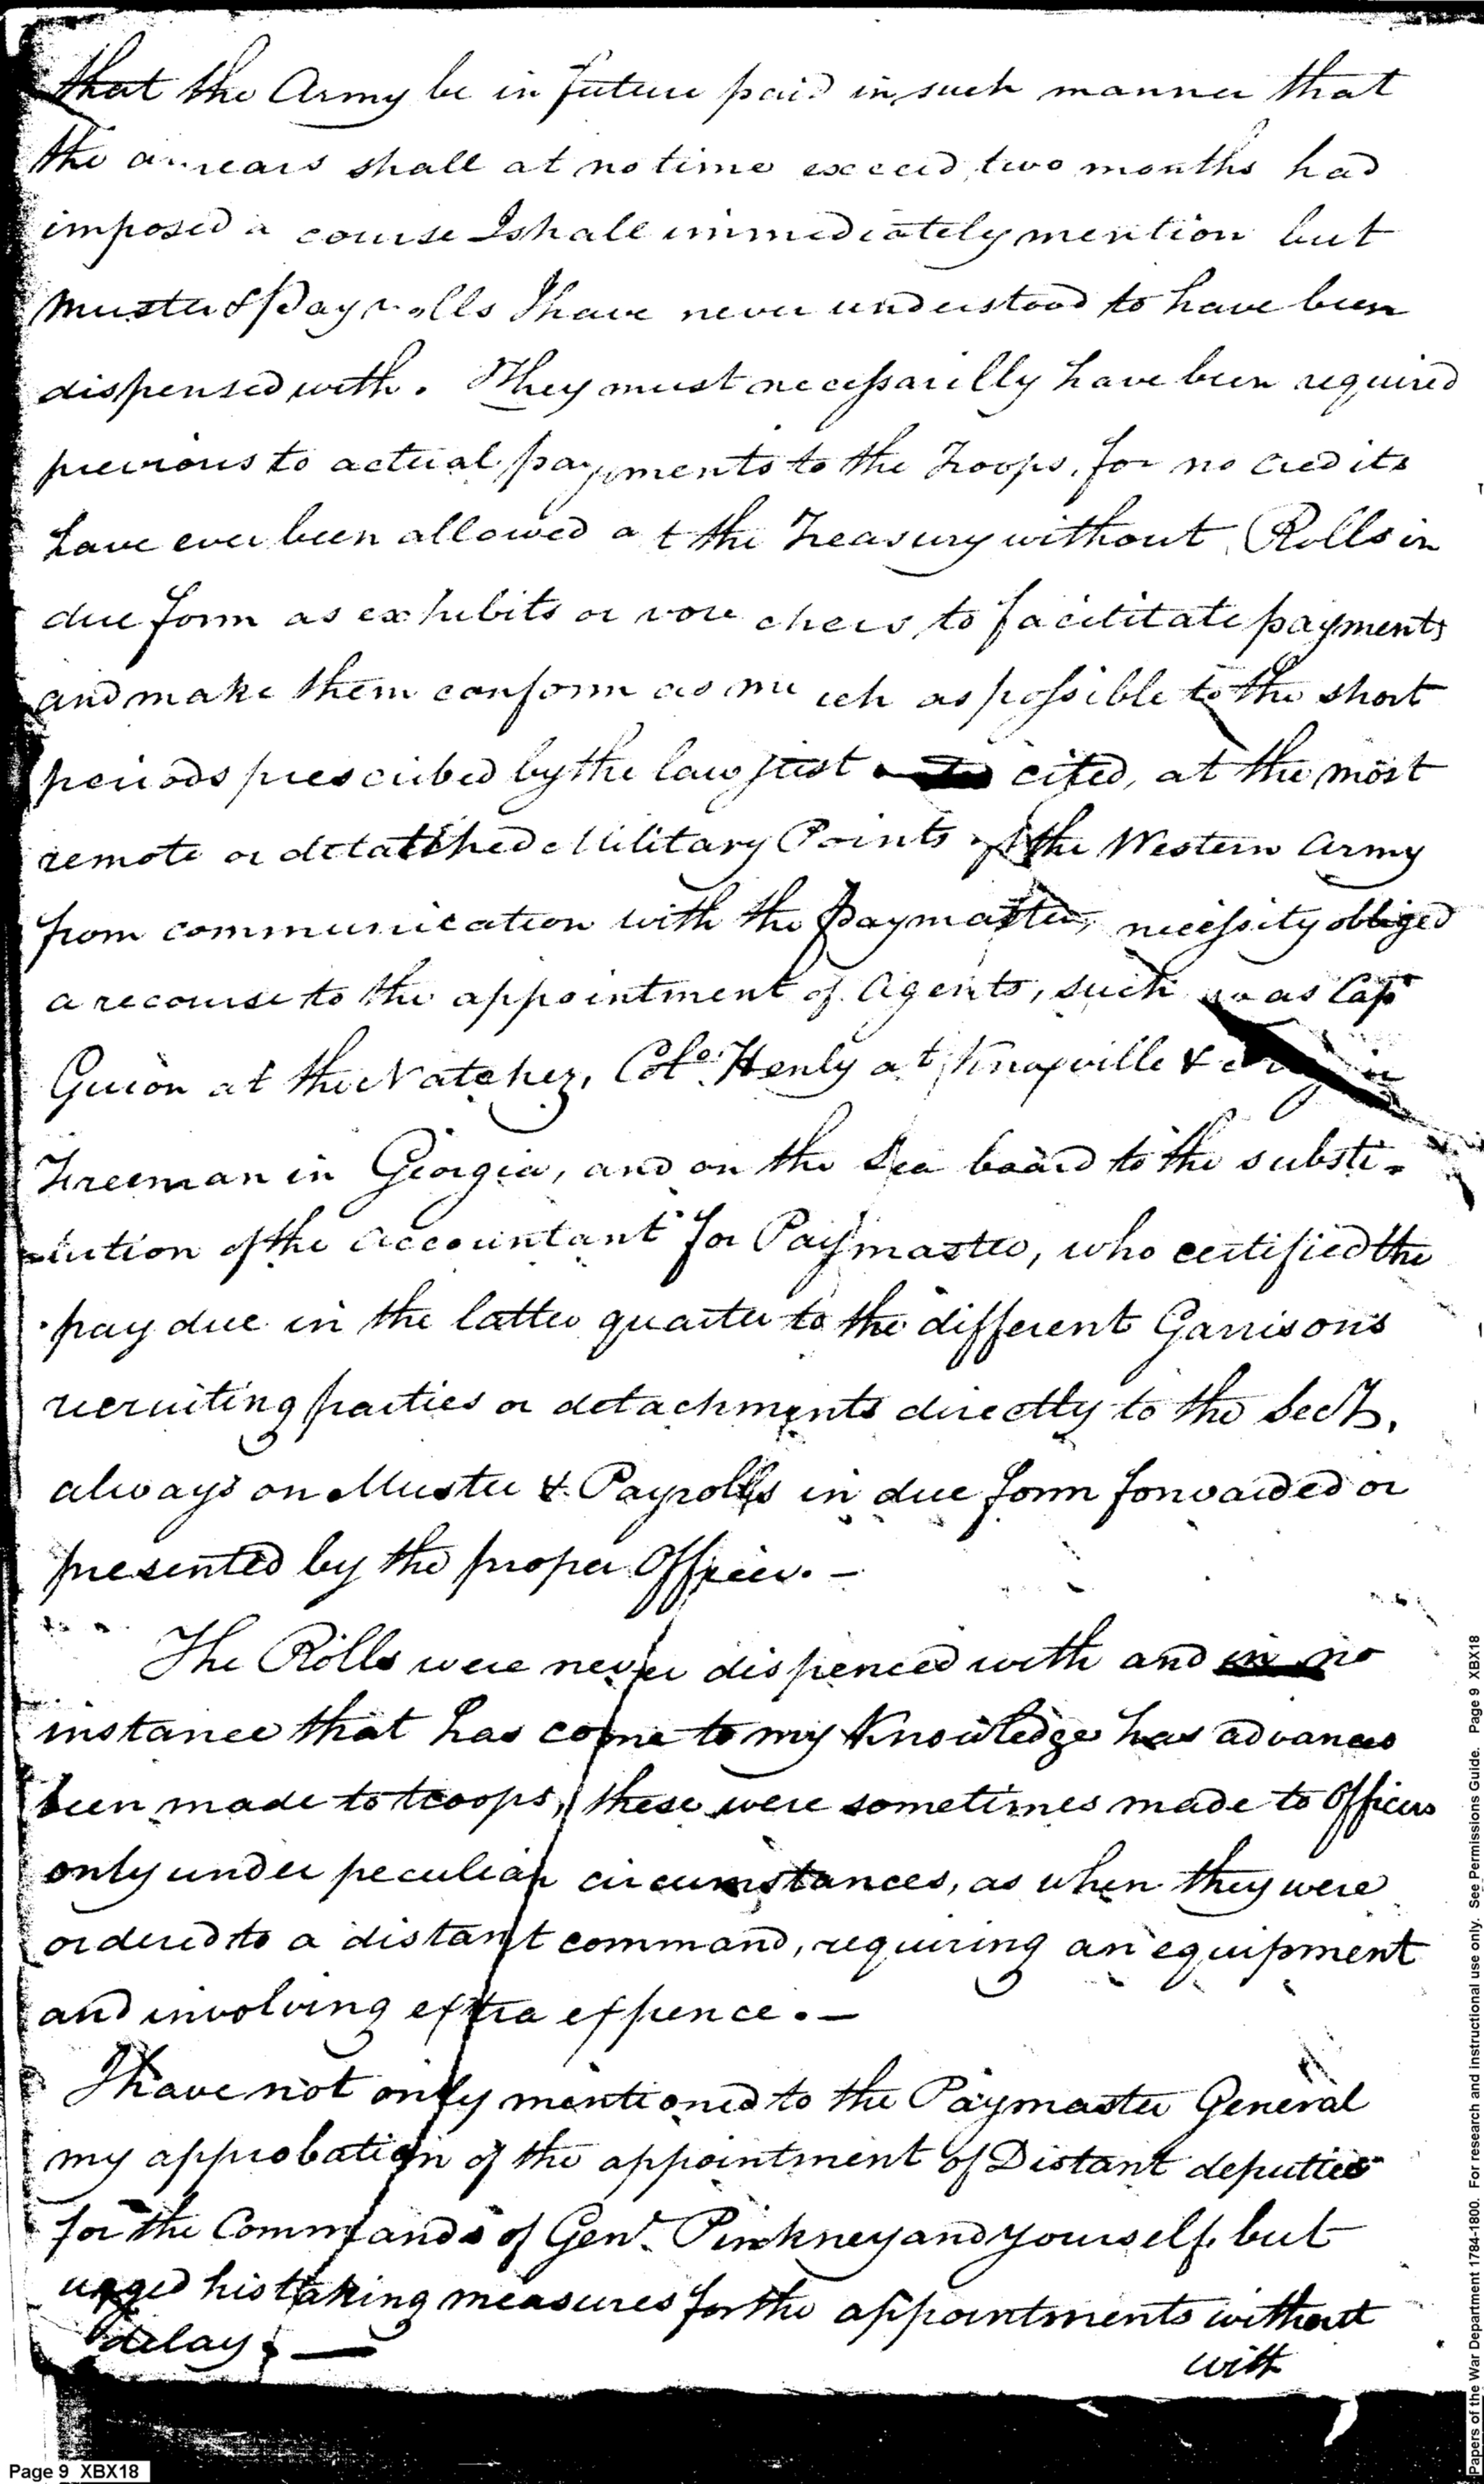 that the Army be in future paid in such manner that
the arrears shall at no time exceed two months had
imposed a course I shall immediately mention but
Muster & Pay rolls I have never understood to have been
dispensed with. They must necessarilly have been required
previous to actual payments to the Troops, for no credits
have ever been allowed at the Treasury without Rolls in
due form as exhibits or vouchers, to facilitate payments
and make them conform as much as possible to the short
periods prescribed by the law just cited, at the most
remote or detatched Military Points of the Western Army
from communication with the Paymaster, necessity obliged
a recourse to the appointment of Agents, such was Capt
Guion at the Natchez, Colo. Henly at Knoxville &
Freeman in Georgia, and on the Sea board to the substi-
-tution of the Accountant for Paymaster, who certified the
pay due in the latter quarter to the different Garrisons
recruiting parties or detachments directly to the Secy,
always on Muster & Payrolls in due form forwarded or
presented by the proper Officer. —
The Rolls were never dispenced with and in no
instance that has come to my Knowledge has advances
been made to troops, these were sometimes made to Officers
only under peculiar circumstances, as when they were
ordered to a distant command, requiring an equipment
and involving extra expence. —
I have not only mentioned to the Paymaster General
my approbation of the appointment of Distant deputies
for the Commands of Genl. Pinkney and yourself, but
urged his taking measures for the appointments without
delay. —
with
Page 9 XBX18
Papers of the War Department 1784-1800. For research and instructional use only. See Permissions Guide. Page 9 XBX18